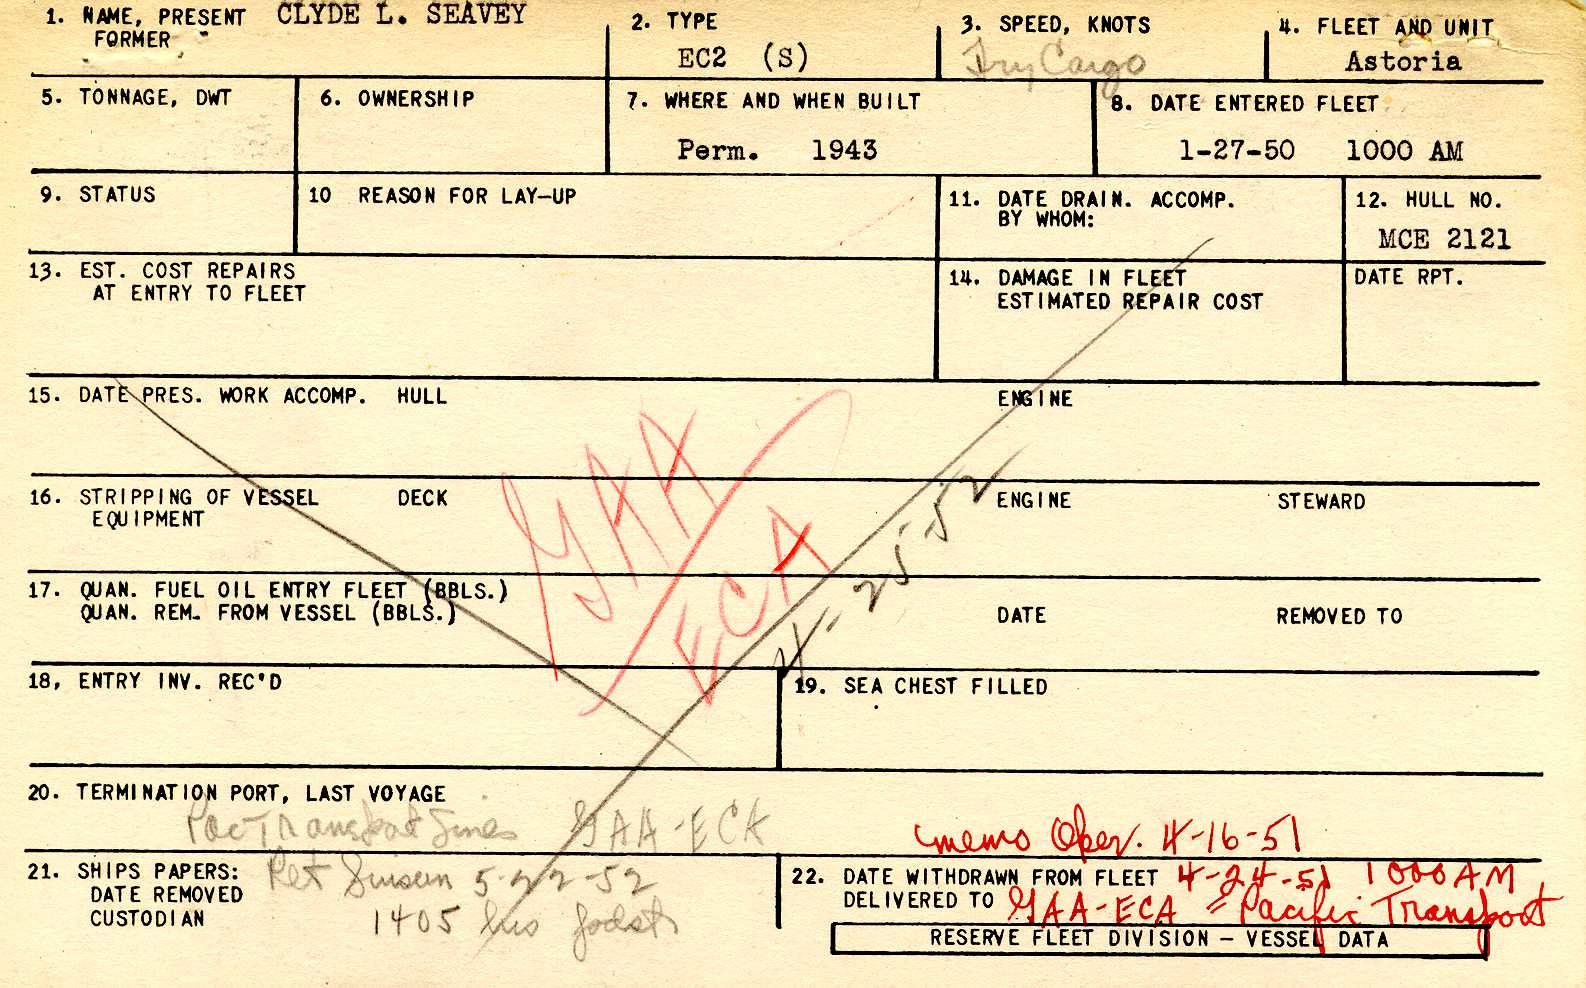 1. NAME, PRESENT CLYDE L. SEAVEY
FORMER
2. TYPE
EC2 (S)
3. SPEED, KNOTS
Dry Cargo
4. FLEET AND UNIT
Astoria
5. TONNAGE, DWT
6. OWNERSHIP
7. WHERE AND WHEN BUILT
Perm. 1943
8. DATE ENTERED FLEET
1-27-50 1000 AM
9. STATUS
10 REASON FOR LAY-UP
11. DATE DRAIN. ACCOMP.
BY WHOM:
12. HULL NO.
MCE 2121
13. EST. COST REPAIRS
AT ENTRY TO FLEET
14. DAMAGE IN FLEET
ESTIMATED REPAIR COST
DATE RPT.
15. DATE PRES. WORK ACCOMP. HULL ENGINE
16. STRIPPING OF VESSEL DECK ENGINE STEWARD
EQUIPMENT
GAA/ECA
4-25-52
17. QUAN. FUEL OIL ENTRY FLEET (BBLS.)
QUAN. REM. FROM VESSEL (BBLS.) DATE REMOVED TO
18, ENTRY INV. REC'D
19. SEA CHEST FILLED
20. TERMINATION PORT, LAST VOYAGE
Pac Transport Lines GAA-ECA
memo Oper. 4-16-51
21. SHIPS PAPERS:
DATE REMOVED
CUSTODIAN
Ret 5-22-52
1405
22. DATE WITHDRAWN FROM FLEET 4-24-51 1000 AM
DELIVERED TO GAA-ECA = Pacific Transport
RESERVE FLEET DIVISION – VESSEL DATA